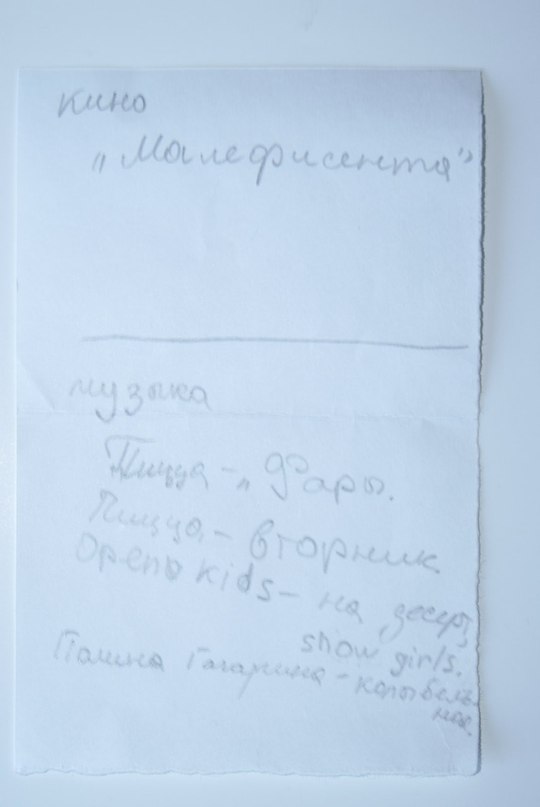 кино
"Малефисента"
музыка
Пицца - "Фары.
Пицца - вторник
Open kids - на десерт,
show girls.
Полина Гагарина - колыбель-
ная.